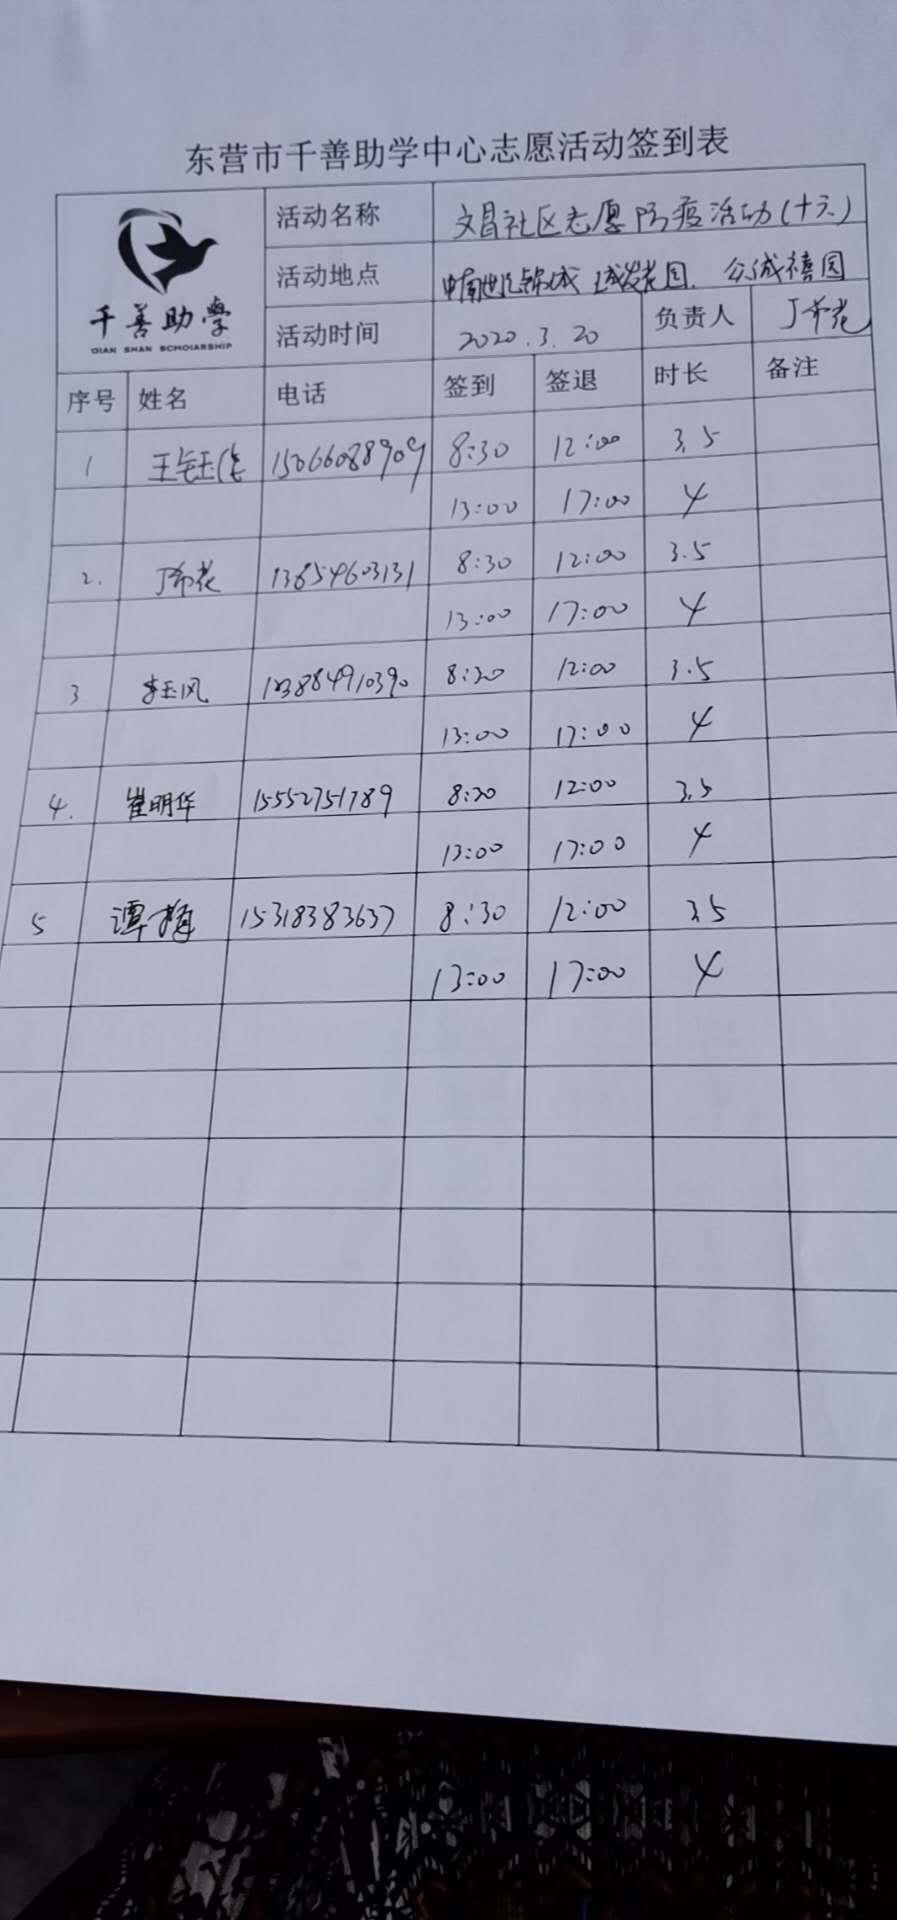 东营市千善助学中心志愿活动签到表
千善助学
QIAN SHAN SCHOLARSHIP
活动名称 文昌社区志愿防疫活动(十六)
活动地点 中南世纪锦城 城发花园. 公诚禧园
活动时间 2020.3.20 负责人 丁希花
序号 姓名 电话 签到 签退 时长 备注
1 王 15066088909 8:30 12:00 3.5
13:00 17:00 4
2. 丁希花 13654603131 8:30 12:00 3.5
13:00 17:00 4
3 李玉风 8:30 12:00 3.5
13:00 17:00 4
4. 崔明华 15552751789 8:30 12:00 3.5
13:00 17:00 4
5 谭梅 15318383637 8:30 12:00 3.5
13:00 17:00 4